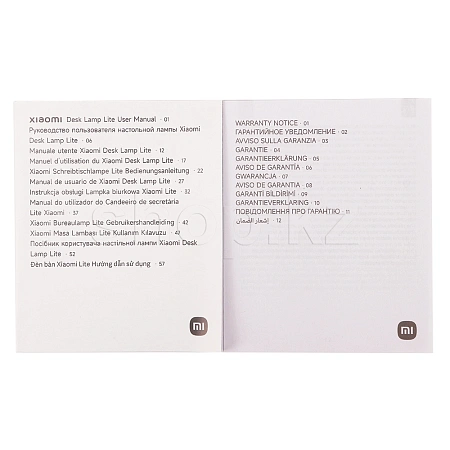 xiaomi Desk Lamp Lite User Manual · 01
Руководство пользователя настольной лампы Xiaomi
Desk Lamp Lite · 06
Manuale utente Xiaomi Desk Lamp Lite · 12
Manuel d'utilisation du Xiaomi Desk Lamp Lite · 17
Xiaomi Schreibtischlampe Lite Bedienungsanleitung · 22
Manual de usuario de Xiaomi Desk Lamp Lite · 27
Instrukcja obsługi Lampka biurkowa Xiaomi Lite · 32
Manual do utilizador do Candeeiro de secretária
Lite Xiaomi · 37
Xiaomi Bureaulamp Lite Gebruikershandleiding · 42
Xiaomi Masa Lambası Lite Kullanım Kılavuzu · 47
Посібник користувача настільної лампи Xiaomi Desk
Lamp Lite · 52
Đèn bàn Xiaomi Lite Hướng dẫn sử dụng · 57
mi
WARRANTY NOTICE · 01
ГАРАНТИЙНОЕ УВЕДОМЛЕНИЕ · 02
AVVISO SULLA GARANZIA · 03
GARANTIE · 04
GARANTIEERKLÄRUNG · 05
AVISO DE GARANTÍA · 06
GWARANCJA · 07
AVISO DE GARANTIA · 08
GARANTİ BİLDİRİMİ · 09
GARANTIEVERKLARING · 10
ПОВІДОМЛЕННЯ ПРО ГАРАНТІЮ · 11
إشعار الضمان · 12
mi